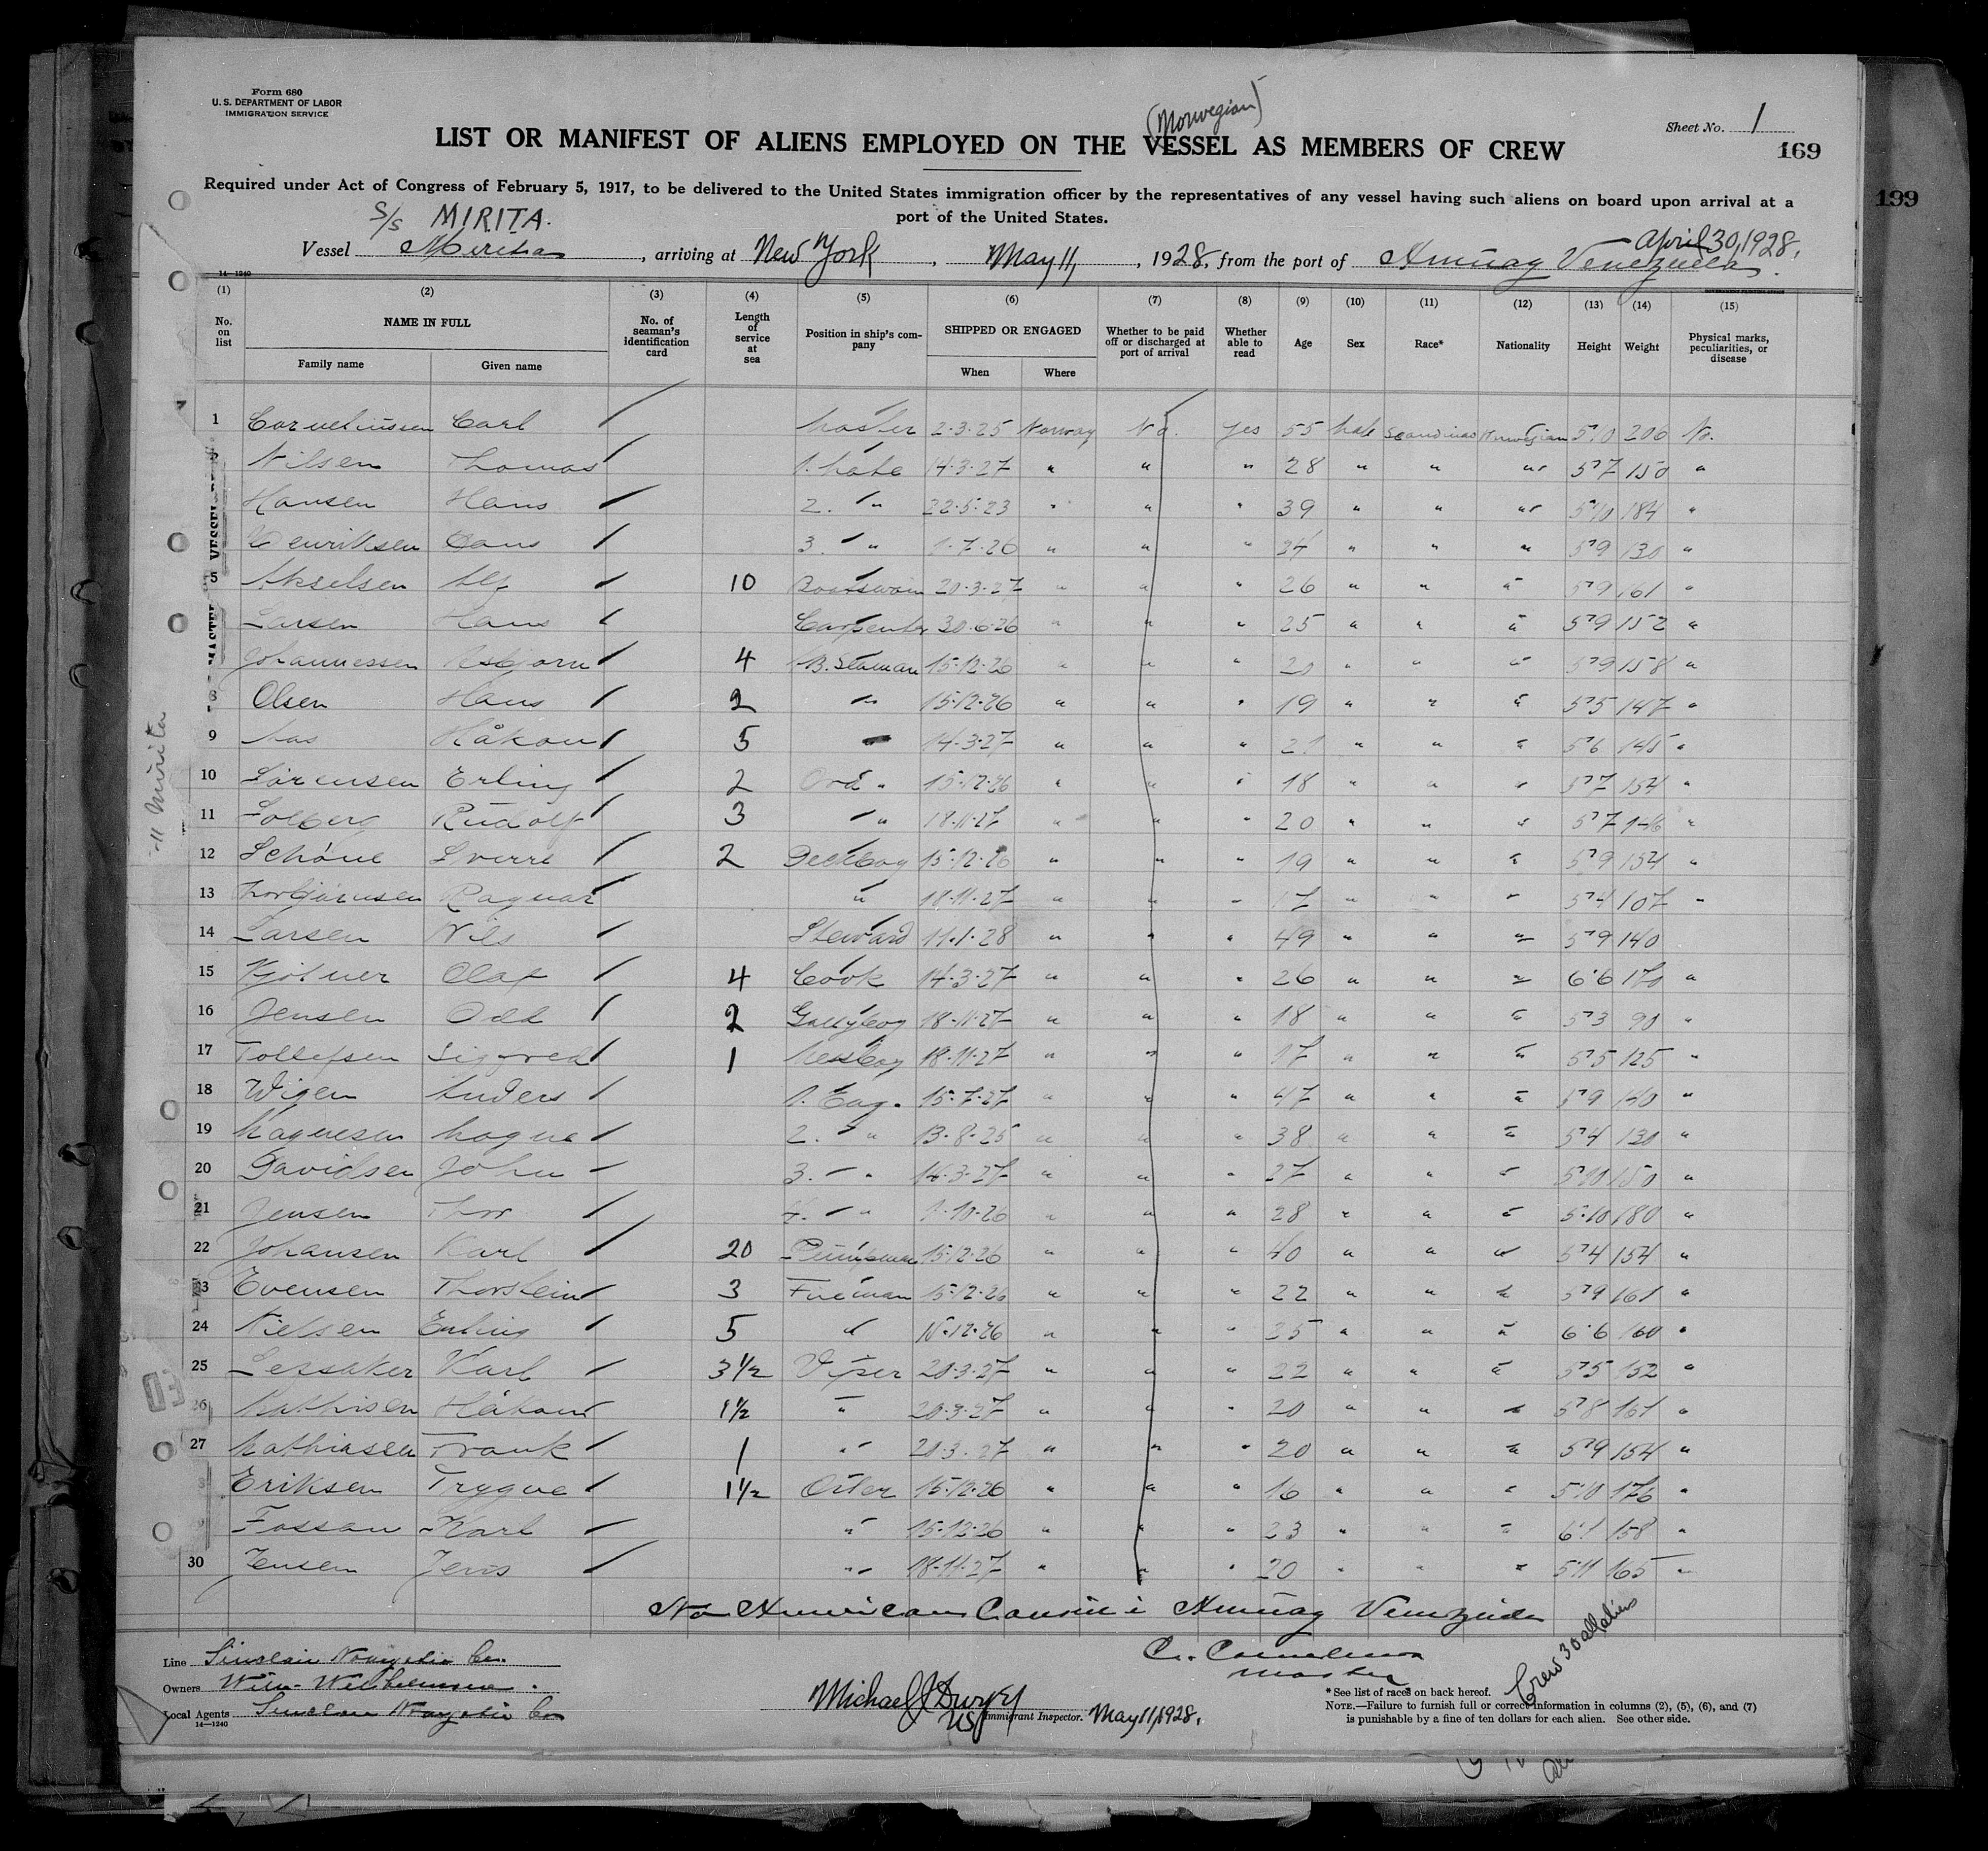 Form 680
U. S. DEPARTMENT OF LABOR
IMMIGRATION SERVICE
(Norwegian)
Sheet No. 1
LIST OR MANIFEST OF ALIENS EMPLOYED ON THE VESSEL AS MEMBERS OF CREW
169
199
Required under Act of Congress of February 5, 1917, to be delivered to the United States immigration officer by the representatives of any vessel having such aliens on board upon arrival at a
port of the United States.
S/S MIRITA.
April 30, 1928.
Vessel Mirita, arriving at New York, May 11, 1928, from the port of Amuay Venezuela.
14—1240
(1) (2) (3) (4) (5) (6) (7) (8) (9) (10) (11) (12) (13) (14) (15)
No. on list NAME IN FULL Family name Given name No. of seaman's identification card Length of service at sea Position in ship's company SHIPPED OR ENGAGED When Where Whether to be paid off or discharged at port of arrival Whether able to read Age Sex Race* Nationality Height Weight Physical marks, peculiarities, or disease
1 Corneliussen Carl Master 2-3-25 Norway No. Yes 55 Male Scandinav Norwegian 5'10 200 No.
Nilsen Thomas 1. Mate 14-3-27 " " " 28 " " " 5'7 150 "
Hansen Hans 2. " 22-5-23 " " " 39 " " " 5'10 184 "
Henriksen 3. " 1-7-26 " " " 34 " " " 5'9 130 "
5 Akselsen Alf 10 Boatswain 20-3-27 " " " 26 " " " 5'9 161 "
Larsen Hans Carpenter 30-6-26 " " " 25 " " " 5'9 152 "
Johannessen Asbjorn 4 Seaman 15-12-26 " " " 20 " " " 5'9 158 "
8 Olsen Hans 2 " 15-12-26 " " " 19 " " " 5'5 147 "
9 Håkon 5 " 14-3-27 " " " 21 " " " 5'6 145 "
10 Sörensen Erling 2 Ord. " 15-12-26 " " " 18 " " " 5'7 154 "
11 Solberg Rudolf 3 " 18-11-27 " " " 20 " " " 5'7 146 "
12 Schöne Sverre 2 Deckboy 15-12-26 " " " 19 " " " 5'9 154 "
13 Thorbjörnsen Ragnar " 18-11-27 " " " 17 " " " 5'4 107 "
14 Larsen Nils Steward 11-1-28 " " " 49 " " " 5'9 140
15 Olaf 4 Cook 14-3-27 " " " 26 " " " 6'6 170 "
16 Jensen Odd 2 Galleyboy 18-11-27 " " " 18 " " " 5'3 90 "
17 Tollefsen Sigfred 1 Messboy 18-11-27 " " " 17 " " " 5'5 125 "
18 Wigen Anders 1. Eng. 15-7-27 " " " 47 " " " 5'9 140 "
19 Magnesen Magne 2. " 13-8-25 " " " 38 " " " 5'4 130 "
20 Davidsen John 3. " 14-3-27 " " " 27 " " " 5'10 150 "
21 Jensen Thor 4. " 1-10-26 " " " 28 " " " 5'10 180 "
22 Johansen Karl 20 Pumpman 15-12-26 " " " 40 " " " 5'4 154 "
23 Evensen Thorstein 3 Fireman 15-12-26 " " " 22 " " " 5'9 161 "
24 Nielsen Erling 5 " 15-12-26 " " " 25 " " " 6'6 160 "
25 Karl 3 1/2 Viper 20-3-27 " " " 22 " " " 5'5 152 "
26 Mathisen Håkon 1 1/2 " 20-3-27 " " " 20 " " " 5'8 161 "
27 Mathiasen Frank 1 " 20-3-27 " " " 20 " " " 5'9 154 "
Eriksen Trygve 1 1/2 Oiler 15-12-26 " " " 16 " " " 5'10 176 "
Fossan Karl " 15-12-26 " " " 23 " " " 6'1 158 "
30 Jensen Jens " 18-11-27 " " " 20 " " " 5'11 165 "
No American Consul i Amuay Venezuela
Line Sinclair Navigatio Co.
Owners Wilh. Wilhelmsen.
Local Agents Sinclair Navigatio Co
14—1240
C. Cornelius
Master
Michael J Dwyer
Immigrant Inspector. May 11, 1928.
Crew 30 all aliens
* See list of races on back hereof.
NOTE.—Failure to furnish full or correct information in columns (2), (5), (6), and (7)
is punishable by a fine of ten dollars for each alien. See other side.